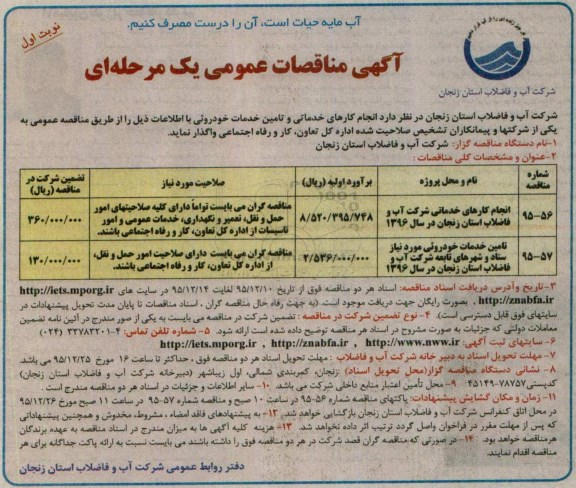 آب مایه حیات است، آن را درست مصرف کنیم.
نوبت اول
آگهی مناقصات عمومی یک مرحله‌ای
شرکت آب و فاضلاب استان زنجان
شرکت آب و فاضلاب استان زنجان در نظر دارد انجام کارهای خدماتی و تامین خدمات خودروئی با اطلاعات ذیل را از طریق مناقصه عمومی به
یکی از شرکتها و پیمانکاران تشخیص صلاحیت شده اداره کل تعاون، کار و رفاه اجتماعی واگذار نماید.
۱-نام دستگاه مناقصه گزار: شرکت آب و فاضلاب استان زنجان
۲-عنوان و مشخصات کلی مناقصات :
شماره مناقصه | نام و محل پروژه | برآورد اولیه (ریال) | صلاحیت مورد نیاز | تضمین شرکت در مناقصه (ریال)
۹۵-۵۶ | انجام کارهای خدماتی شرکت آب و فاضلاب استان زنجان در سال ۱۳۹۶ | ۸/۵۲۰/۳۹۵/۷۴۸ | مناقصه گران می بایست تواماً دارای کلیه صلاحیتهای امور حمل و نقل، تعمیر و نگهداری، خدمات عمومی و امور تاسیسات از اداره کل تعاون، کار و رفاه اجتماعی باشند. | ۳۶۰/۰۰۰/۰۰۰
۹۵-۵۷ | تامین خدمات خودروئی مورد نیاز ستاد و شهرهای تابعه شرکت آب و فاضلاب استان زنجان در سال ۱۳۹۶ | ۲/۵۳۶/۰۰۰/۰۰۰ | مناقصه گران می بایست دارای صلاحیت امور حمل و نقل، از اداره کل تعاون، کار و رفاه اجتماعی باشند. | ۱۳۰/۰۰۰/۰۰۰
۳-تاریخ وآدرس دریافت اسناد مناقصه: اسناد هر دو مناقصه فوق از تاریخ ۹۵/۱۲/۱۰ لغایت ۹۵/۱۲/۱۴ در سایت های http://iets.mporg.ir
, http://znabfa.ir بصورت رایگان جهت دریافت موجود است. (به جهت رفاه حال مناقصه گران ، اسناد مناقصات تا پایان مدت تحویل پیشنهادات در
سایتهای فوق قابل دسترسی است). ۴- نوع تضمین شرکت در مناقصه : تضمین شرکت در مناقصه می بایست به یکی از صور مندرج در آئین نامه تضمین
معاملات دولتی که جزئیات به صورت مشروح در اسناد هر مناقصه توضیح داده شده است ارائه شود. ۵- شماره تلفن تماس: ۴-۳۳۷۸۳۲۰۱ (۰۲۴)
۶- سایتهای ثبت آگهی: http://iets.mporg.ir , http://znabfa.ir , http://www.nww.ir
۷- مهلت تحویل اسناد به دبیر خانه شرکت آب و فاضلاب : مهلت تحویل اسناد هر دو مناقصه فوق ، حداکثر تا ساعت ۱۶ مورخ ۹۵/۱۲/۲۵ می باشد.
۸- نشانی دستگاه مناقصه گزار(محل تحویل اسناد) زنجان، کمربندی شمالی، اول زیباشهر (دبیرخانه شرکت آب و فاضلاب استان زنجان)
کدپستی۷۸۷۵۷-۴۵۱۴۹ ۹- محل تأمین اعتبار منابع داخلی شرکت می باشد. ۱۰- سایر اطلاعات و جزئیات در اسناد هر دو مناقصه مندرج است .
۱۱- زمان و مکان گشایش پیشنهادات: پاکتهای مناقصه شماره ۵۶-۹۵ در ساعت ۱۰ صبح و مناقصه شماره ۵۷-۹۵ در ساعت ۱۱ صبح مورخ ۹۵/۱۲/۲۶
در محل اتاق کنفرانس شرکت آب و فاضلاب استان زنجان بازگشایی خواهد شد. ۱۲- به پیشنهادهای فاقد امضاء ، مشروط، مخدوش و همچنین پیشنهاداتی
که پس از مهلت مقرر در فراخوان واصل گردد ترتیب اثر داده نخواهد شد. ۱۳- هزینه کلیه آگهی ها به میزان مندرج در اسناد مناقصه به عهده برندگان
هرمناقصه خواهد بود. ۱۴- در صورتی که مناقصه گران قصد شرکت در هر دو مناقصه فوق را داشته باشند می بایست نسبت به ارائه پاکت جداگانه برای هر
مناقصه اقدام نمایند.
دفتر روابط عمومی شرکت آب و فاضلاب استان زنجان